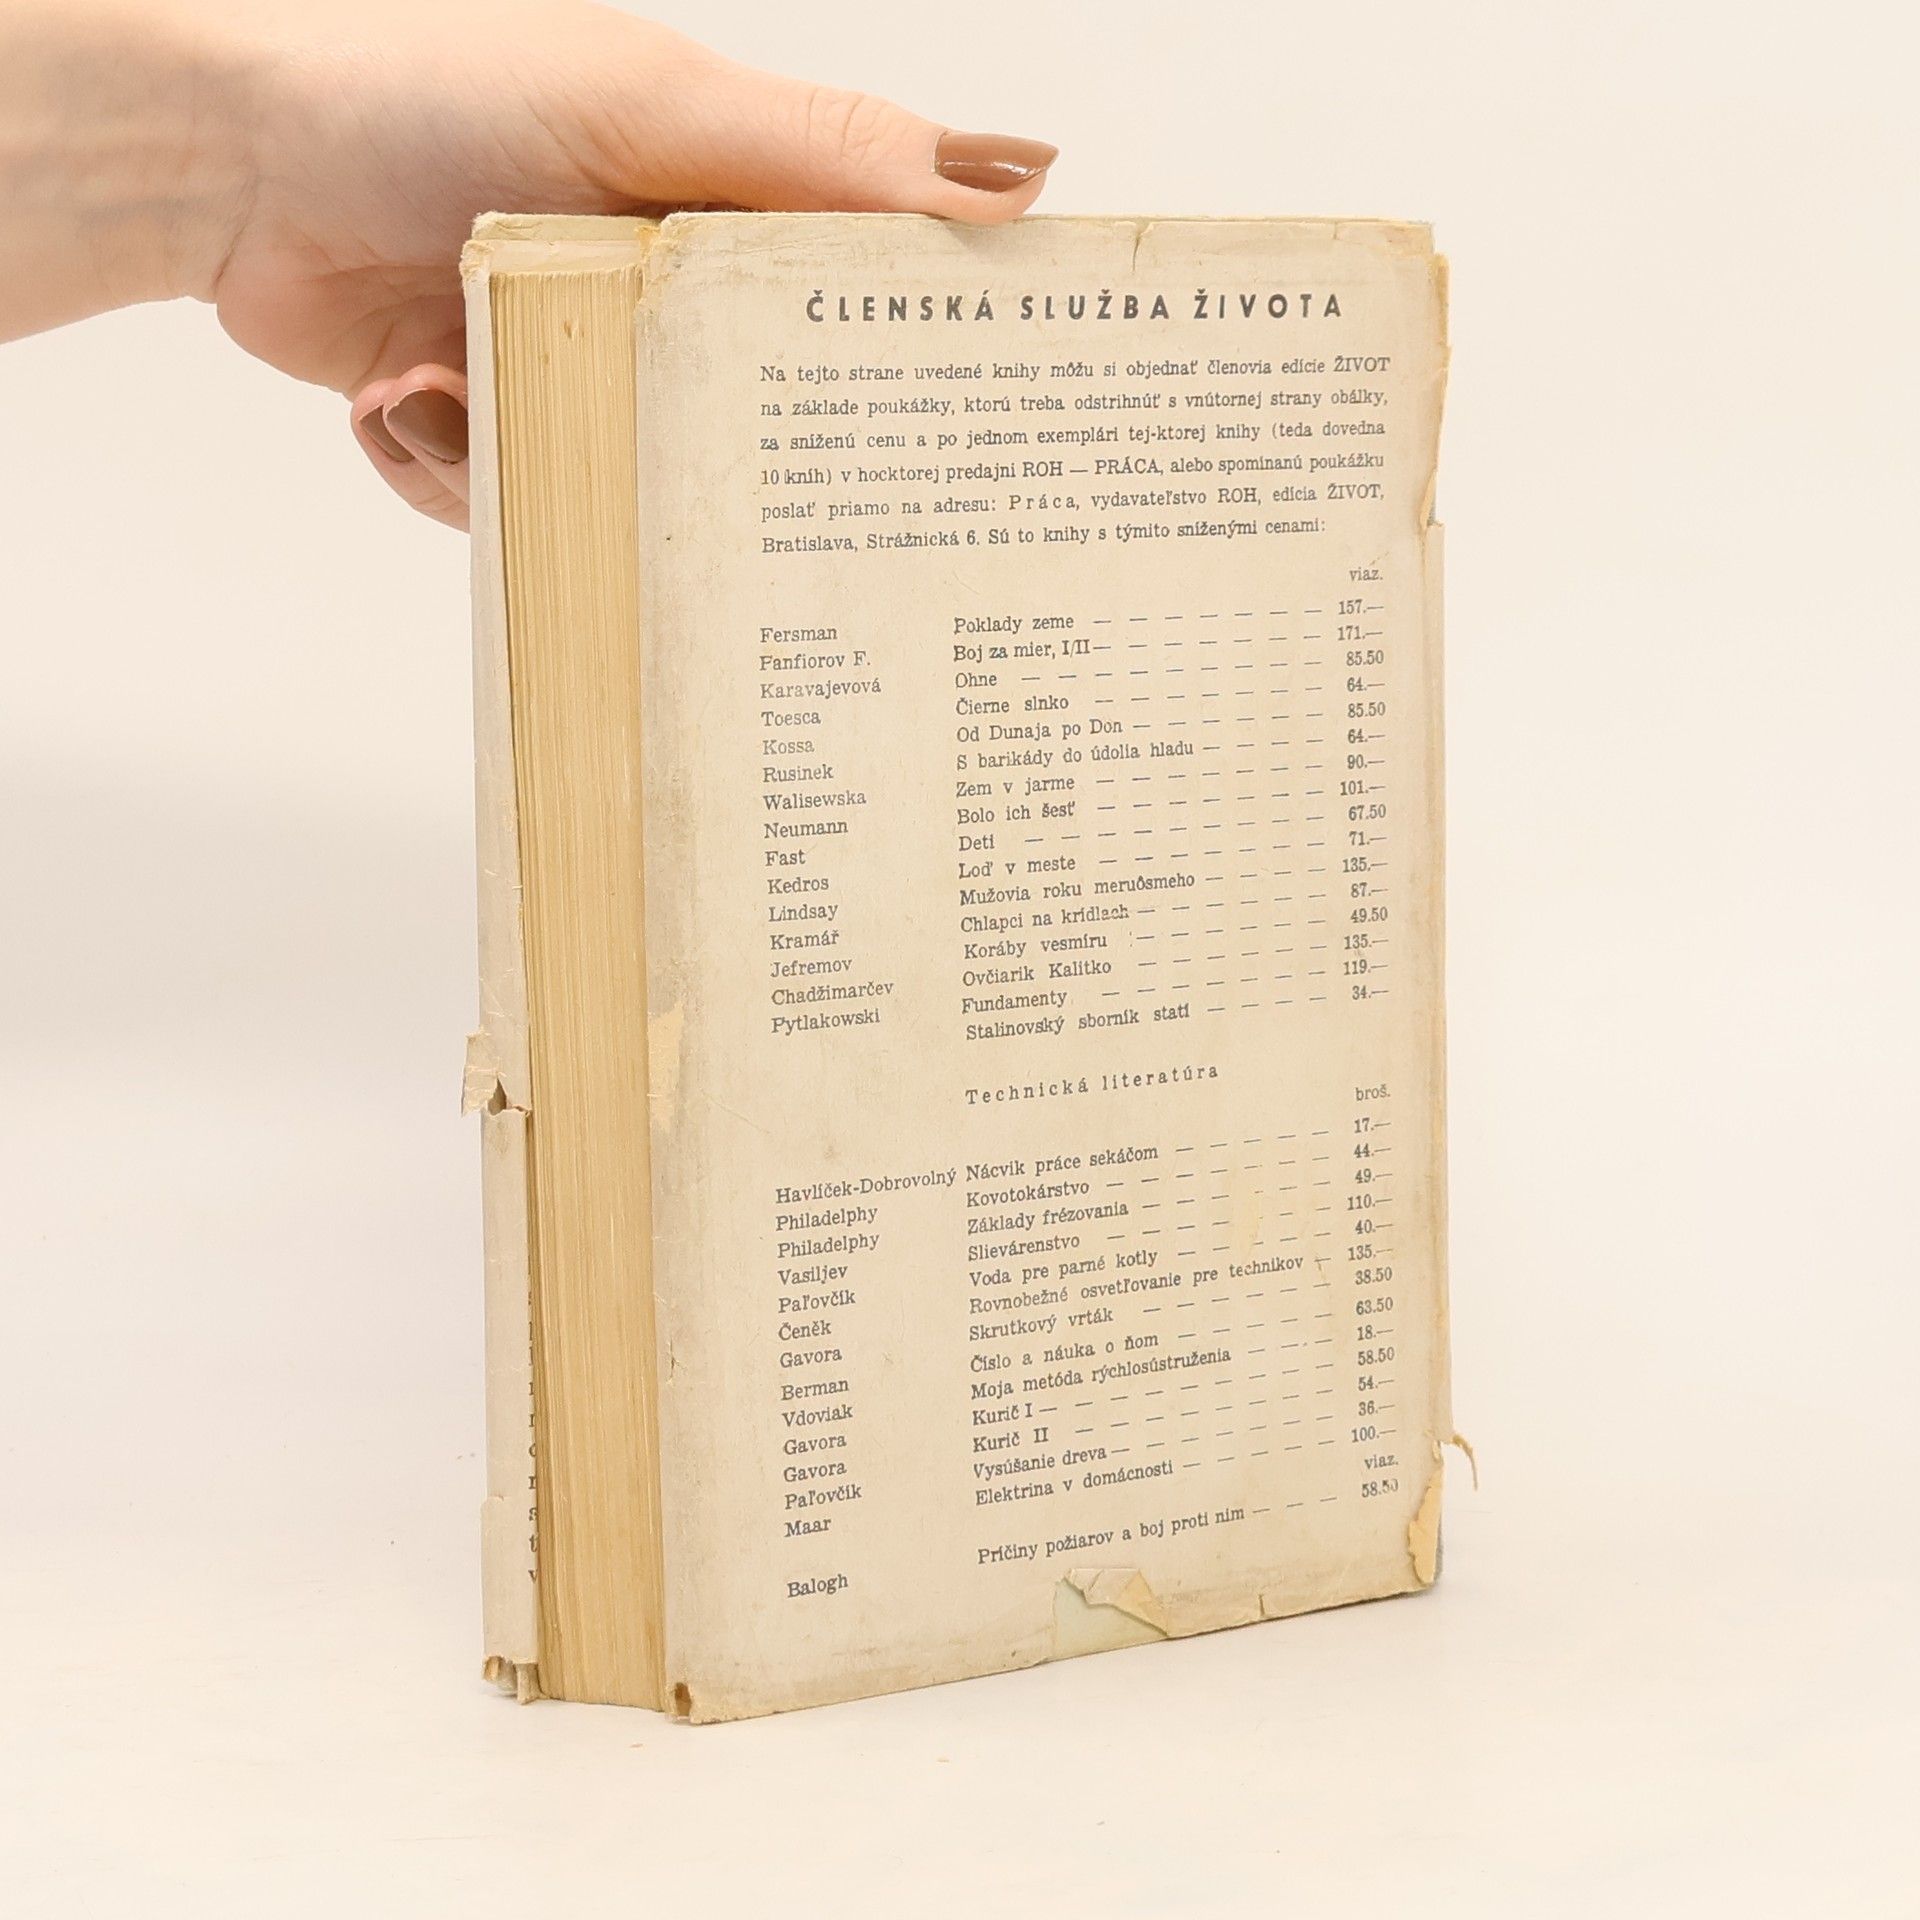 ČLENSKÁ SLUŽBA ŽIVOTA
Na tejto strane uvedené knihy môžu si objednať členovia edície ŽIVOT
na základe poukážky, ktorú treba odstrihnúť s vnútornej strany obálky,
za sníženú cenu a po jednom exemplári tej-ktorej knihy (teda dovedna
10 kníh) v hocktorej predajni ROH — PRÁCA, alebo spomínanú poukážku
poslať priamo na adresu: Práca, vydavateľstvo ROH, edícia ŽIVOT,
Bratislava, Strážnická 6. Sú to knihy s týmito sníženými cenami:
viaz.
Fersman Poklady zeme — — — — — — — 157.—
Fanfiorov F. Boj za mier, I/II — — — — — — — 171.—
Karavajevová Ohne — — — — — — — — — 85.50
Toesca Čierne slnko — — — — — — — 64.—
Kossa Od Dunaja po Don — — — — — — 85.50
Rusinek S barikády do údolia hladu — — — — 64.—
Walisewska Zem v jarme — — — — — — — 90.—
Neumann Bolo ich šesť — — — — — — — 101.—
Fast Deti — — — — — — — — — 67.50
Kedros Loď v meste — — — — — — — 71.—
Lindsay Mužovia roku meruôsmeho — — — — 135.—
Kramář Chlapci na krídlach — — — — — — 87.—
Jefremov Koráby vesmíru — — — — — — 49.50
Chadžimarčev Ovčiarik Kalitko — — — — — — 135.—
Pytlakowski Fundamenty — — — — — — — 119.—
Stalinovský sborník statí — — — — 34.—
Technická literatúra
broš.
Havlíček-Dobrovolný Nácvik práce sekáčom — — — — — 17.—
Philadelphy Kovotokárstvo — — — — — — — 44.—
Philadelphy Základy frézovania — — — — — — 49.—
Vasiljev Slievárenstvo — — — — — — — 110.—
Paľovčík Voda pre parné kotly — — — — — 40.—
Čeněk Rovnobežné osvetľovanie pre technikov — 135.—
Gavora Skrutkový vrták — — — — — — 38.50
Berman Číslo a náuka o ňom — — — — — 63.50
Vdoviak Moja metóda rýchlosústruženia — — — 18.—
Gavora Kurič I — — — — — — — — — 58.50
Gavora Kurič II — — — — — — — — 54.—
Paľovčík Vysúšanie dreva — — — — — — — 36.—
Maar Elektrina v domácnosti — — — — — 100.—
viaz.
Balogh Príčiny požiarov a boj proti nim — — — 58.50